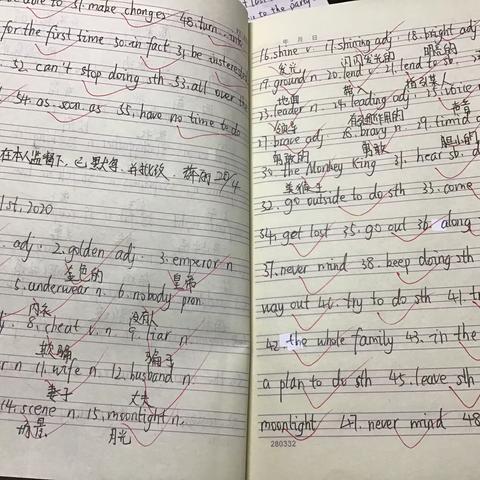 able to 31. make changes 48. turn into
for the first time 50. in fact 51. be interested
52. can't stop doing sth 53. all over the
54. as soon as 55. have no time to do
在本人监督下，已默写、并批改
1st, 2020
adj. 2. golden adj. 3. emperor n
金色的 皇帝
5. underwear n. 6. nobody pron
内衣 没有人
8. cheat v. n 9. liar n
欺骗 骗子
n 11. wife n. 12. husband n
妻子 丈夫
14. scene n. 15. moonlight n.
场景 月光
to the party
年 月 日
16. shine v. 17. shining adj. 18. bright adj
发光 闪闪发光的 明亮的
19. ground n 20. lend v. 21. lend to sb.
地面 借给某人
23. leader n. 24. leading adj. 25. voice n
领导 声音
27. brave adj 28. bravy n. 29. timid
勇敢的 勇敢 胆小的
30. the Monkey King 31. hear sb. d
美猴王
32. go outside to do sth 33. come
34. get lost 35. go out 36. along
37. never mind 38. keep doing sth
way out 40. try to do sth 41. t
42. the whole family 43. in the
a plan to do sth 45. leave sth
moonlight 47. never mind 48
280332